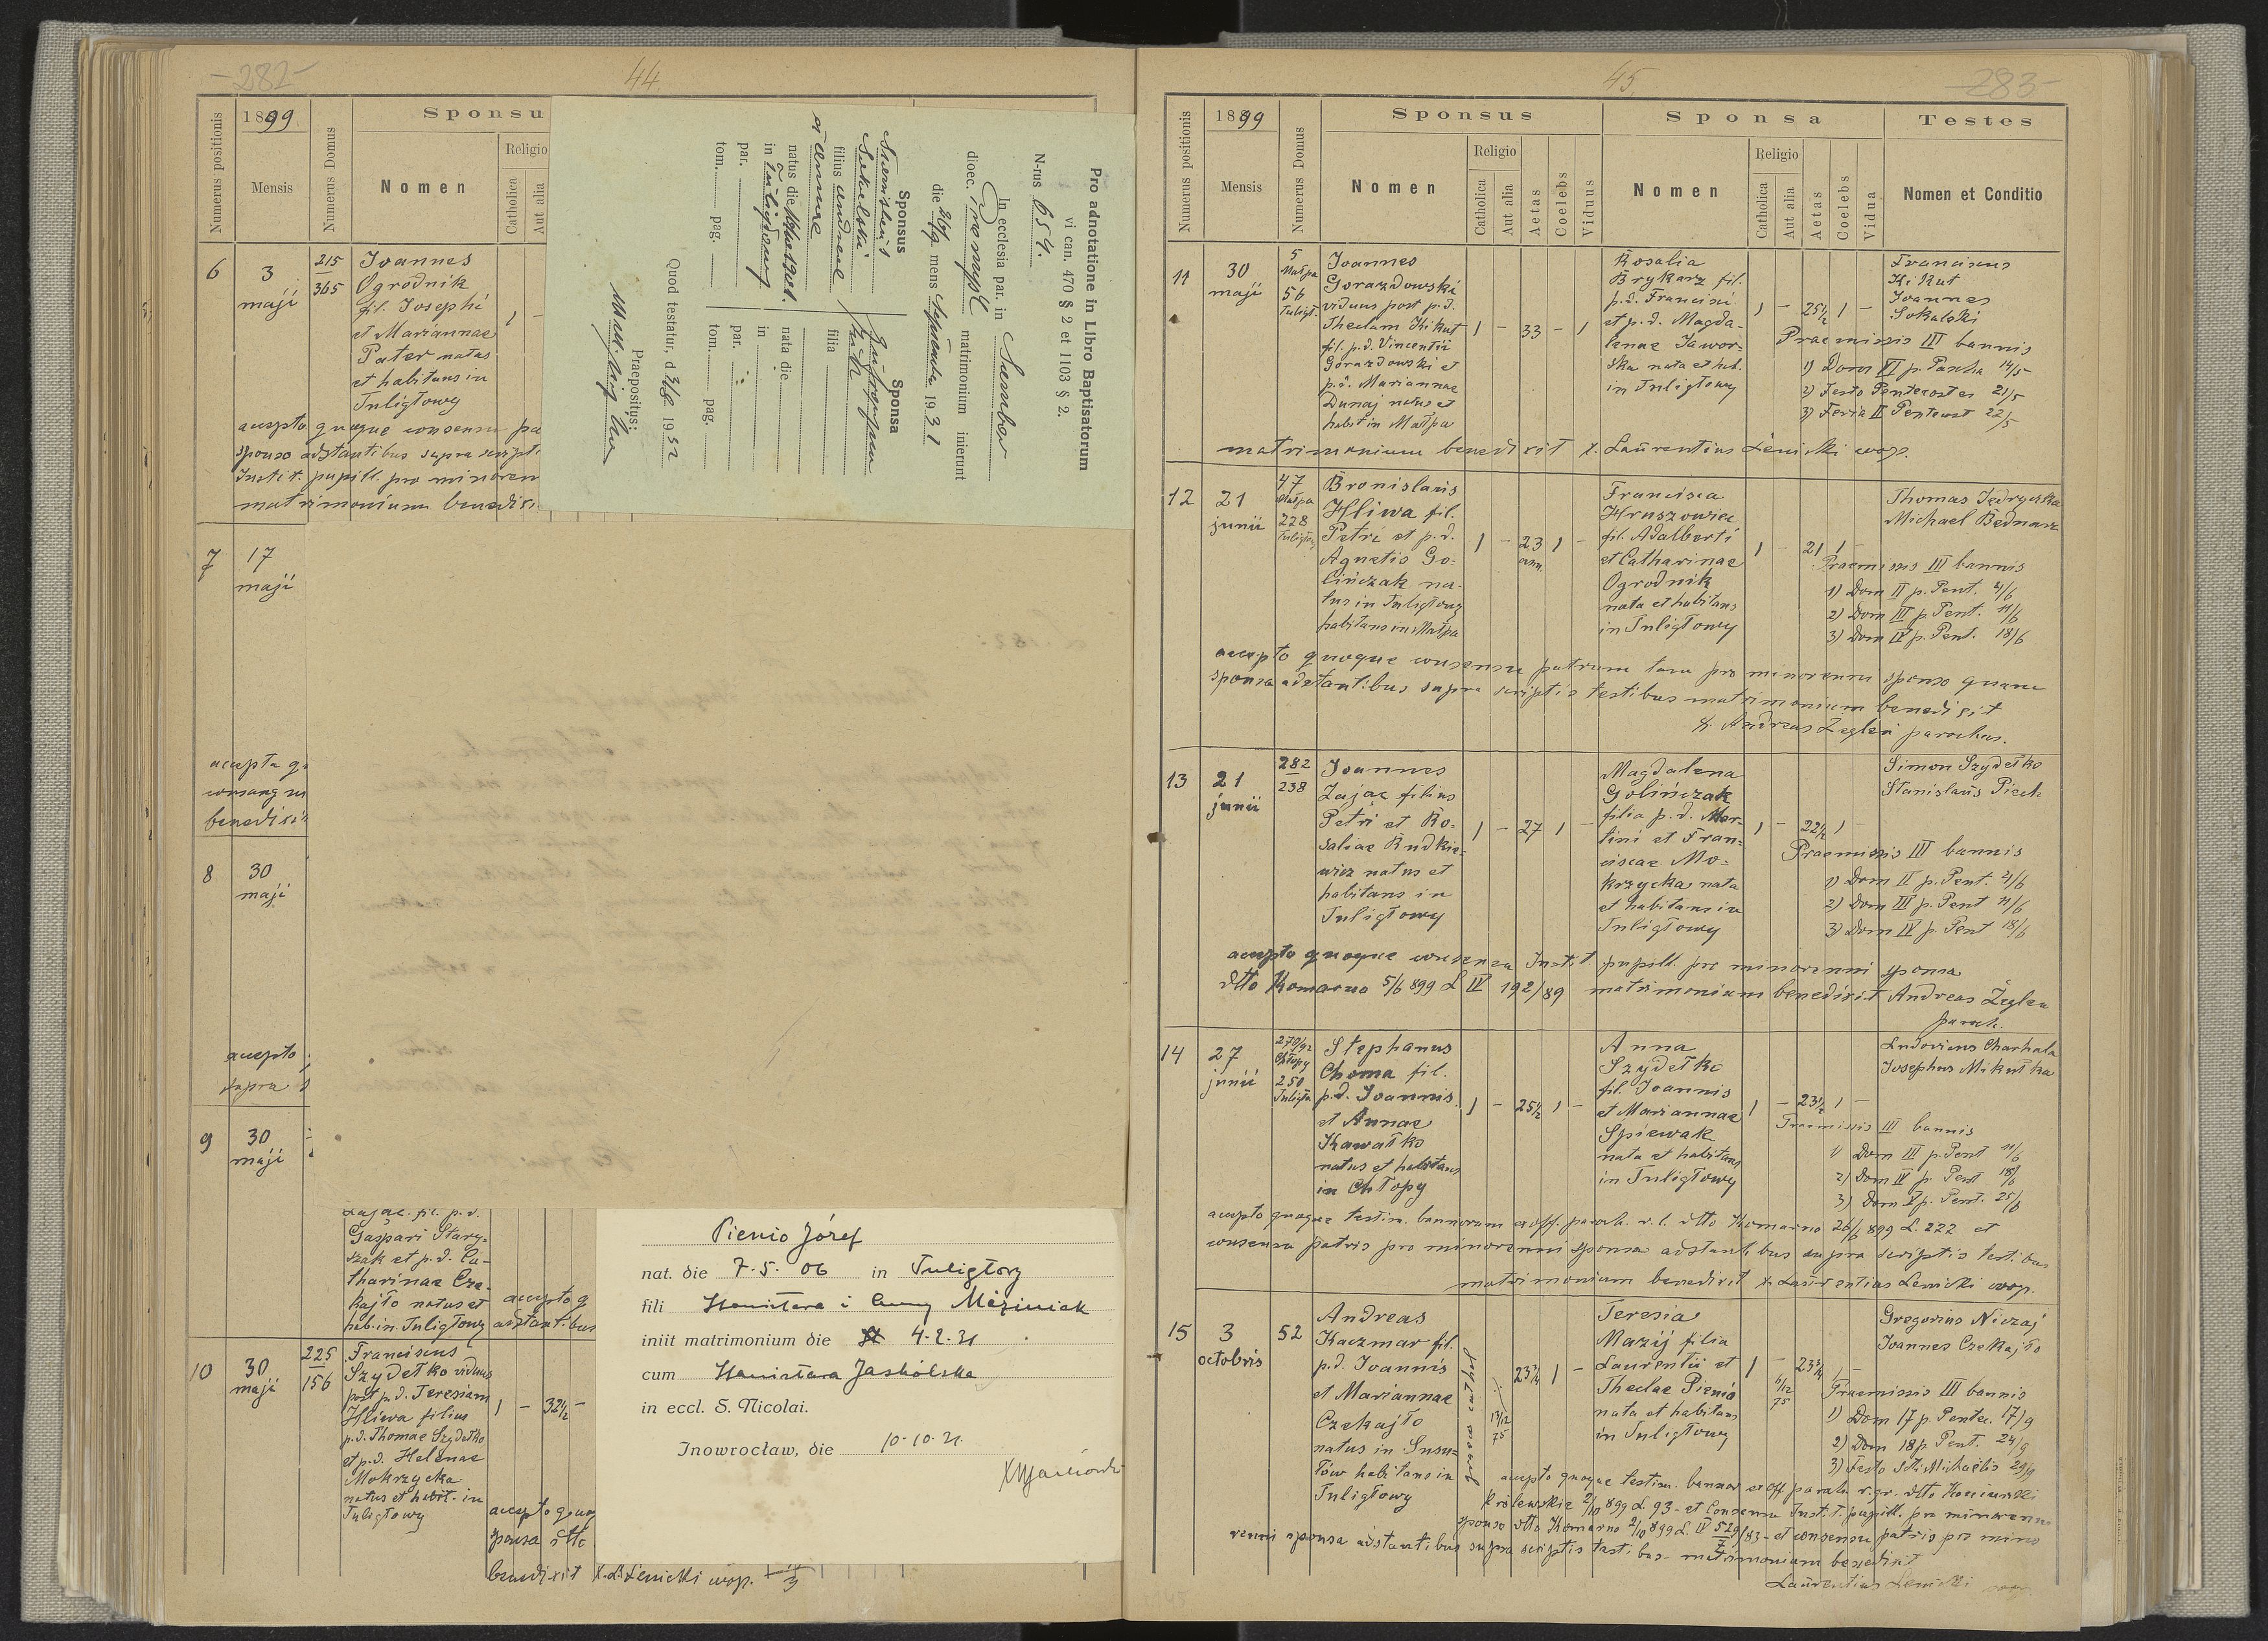 - 282 -
44.
Numerus positionis
1899
Mensis
Numerus Domus
Sponsu
Nomen
Religio
Catholica
Aut alia
6
3
maji
215
365
Joannes
Ogrodnik
fil. Josephi
et Mariannae
Pater natus
et habitans in
Tuligłowy
1 -
accepto quoque consensu pa
sponso adstantibus supra script
Instit. pupill. pro minoren
matrimonium benedixi
7
17
maji
accepta q
consang
benedixi
8
30
maji
accepto
supra
9
30
maji
Zając fil. p.d.
Gaspari Stary-
szak et p.d. Ca-
tharinae Cze-
kajło natus et
hab. in Tuligłowy
accepto q
adstantibus
10
30
maji
225
156
Franciscus
Szydełko viduus
post p.d. Teresiam
Hliwa filius
p.d. Thomae Szydełko
et p.d. Helenae
Mokrzycka
natus et habit. in
Tuligłowy
1 - 32½ -
accepto quoq
sponsa dtto
benedixit X. L. Lenicki coop.
Pro adnotatione in Libro Baptisatorum
vi can. 470 § 2 et 1103 § 2.
N-rus 654.
In ecclesia par. in Sambor
dioec. Przemyśl matrimonium inierunt
die 26/9 mens Septembr 1931
Sponsus
Stanislaus
Sokalski
filius Andreae
et Annae
natus die
in Tuligłowy
par.
tom. pag.
Sponsa
filia
nata die
in
par.
tom. pag.
Quod testatur, d 1932
Praepositus:
Pienio Józef
nat. die 7.5.06 in Tuligłowy
fili Stanisława i Anny Maziniak
iniit matrimonium die 4.2.31
cum Stanisława Jaskólska
in eccl. S. Nicolai.
Inowrocław, die 10.10.31.
45.
283 -
Numerus positionis
1899
Mensis
Numerus Domus
Sponsus
Nomen
Religio
Catholica
Aut alia
Aetas
Coelebs
Viduus
Sponsa
Nomen
Religio
Catholica
Aut alia
Aetas
Coelebs
Vidua
Testes
Nomen et Conditio
11
30
maji
5
Małpa
56
Tuligł.
Joannes
Gorazdowski
viduus post p.d.
Theclam Kikut
fil. p.d. Vincentii
Gorazdowski et
p.d. Mariannae
Dunaj natus et
habit in Małpa
1 - 33 - 1
Rosalia
Brykarz fil.
p.d. Francisci
et p.d. Magda-
lenae Jawor-
ska nata et hab.
in Tuligłowy
1 - 25½ 1 -
Franciscus
Kikut
Joannes
Sokalski
Praemissis III bannis
1) Dom VI p. Pascha 14/5
2) Festo Pentecostes 21/5
3) Feria II Pentecost 22/5
matrimonium benedixit X. Laurentius Lenicki coop.
12
21
junii
47
Małpa
228
Tuligłowy
Bronislaus
Hliwa fil.
Petri et p.d.
Agnetis Go-
lińczak na-
tus in Tuligłowy
habitans in Małpa
1 - 23 1 -
ann.
Francisca
Hruszowiec
fil. Adalberti
et Catharinae
Ogrodnik
nata et habitans
in Tuligłowy
1 - 21 1 -
Thomas Jędryczka
Michael Bednarz
Praemissis III bannis
1) Dom II p. Pent. 4/6
2) Dom III p. Pent. 11/6
3) Dom IV p. Pent. 18/6
accepto quoque consensu patrum tam pro minorenni sponso quam
sponsa adstantibus supra scriptis testibus matrimonium benedixit
X. Andreas Żegleń parochus.
13
21
junii
282
238
Joannes
Zając filius
Petri et Ro-
saliae Rudkie-
wicz natus et
habitans in
Tuligłowy
1 - 27 1 -
Magdalena
Golińczak
filia p.d. Mar-
tini et Fran-
ciscae Mo-
krzycka nata
et habitans in
Tuligłowy
1 - 22½ 1 -
Simon Szydełko
Stanislaus Piech
Praemissis III bannis
1) Dom II p. Pent. 4/6
2) Dom III p. Pent 11/6
3) Dom IV p. Pent 18/6
accepto quoque consensu Instit. pupill. pro minorenni sponsa
dtto Komarno 5/6 899 L IV 192/89 matrimonium benedixit Andreas Żegleń
paroch.
14
27
junii
270/92
Chłopy
250
Tuligł
Stephanus
Choma fil.
p.d. Joannis
et Annae
Kawałko
natus et habitans
in Chłopy
1 - 25½ 1 -
Anna
Szydełko
fil. Joannis
et Mariannae
Spiewak
nata et habitans
in Tuligłowy
1 - 23½ 1 -
Ludovicus Charhala
Josephus Mikułka
Praemissis III bannis
1) Dom III p. Pent 11/6
2) Dom IV p. Pent 18/6
3) Dom V p. Pent. 25/6
accepto quoque testim. bannorum ex off. paroch. r. l. dtto Komarno 26/6 899 L. 222 et
consensu patris pro minorenni sponsa adstantibus supra scriptis testibus
matrimonium benedixit X. Laurentius Lenicki coop.
15
3
octobris
52
Andreas
Kaczmar fil.
p.d. Joannis
et Mariannae
Czekajło
natus in Susu-
łów habitans in
Tuligłowy
13/12
75
23¾ 1 -
Teresia
Mazij filia
Laurentii et
Theclae Pienio
nata et habitans
in Tuligłowy
1 - 23¾ 1 -
6/12
75
Gregorius Niczaj
Joannes Czekajło
Praemissis III bannis
1) Dom 17 p. Pentec. 17/9
2) Dom 18 p. Pent. 24/9
3) Festo S. Michaëlis 29/9
accepto quoque testim. bannor ex off paroch r. gr. dtto
Królewskie 2/10 899 L. 93 - et Consensu Instit. pupill. pro minorenni
sponso dtto Komarno 2/10 899 L. IV 529/83 - et consensu patris pro mino
7
renni sponsa adstantibus supra scriptis testibus matrimonium benedixit
Laurentius Lenicki coop.